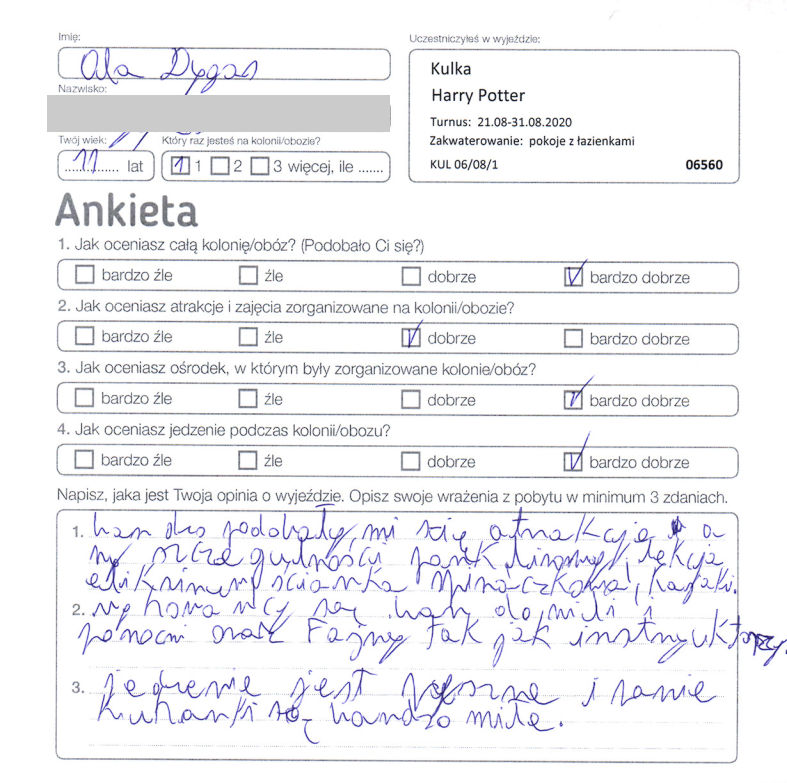 Imię:
Ala Dygas
Nazwisko:
Twój wiek:
11 lat
Który raz jesteś na kolonii/obozie?
1 1 2 3 więcej, ile .......
Uczestniczyłeś w wyjeździe:
Kulka
Harry Potter
Turnus: 21.08-31.08.2020
Zakwaterowanie: pokoje z łazienkami
KUL 06/08/1 06560
Ankieta
1. Jak oceniasz całą kolonię/obóz? (Podobało Ci się?)
bardzo źle źle dobrze bardzo dobrze
2. Jak oceniasz atrakcje i zajęcia zorganizowane na kolonii/obozie?
bardzo źle źle dobrze bardzo dobrze
3. Jak oceniasz ośrodek, w którym były zorganizowane kolonie/obóz?
bardzo źle źle dobrze bardzo dobrze
4. Jak oceniasz jedzenie podczas kolonii/obozu?
bardzo źle źle dobrze bardzo dobrze
Napisz, jaka jest Twoja opinia o wyjeździe. Opisz swoje wrażenia z pobytu w minimum 3 zdaniach.
1. bardzo podobały mi się atrakcje a
w szczególności park linowy, lekcja
eliksirów, ścianka wspinaczkowa, kajaki.
2. wychowawcy są bardzo mili i
pomocni oraz Fajny tak jak instruktorzy.
3. jedzenie jest pyszne i panie
kuharki są bardzo miłe.